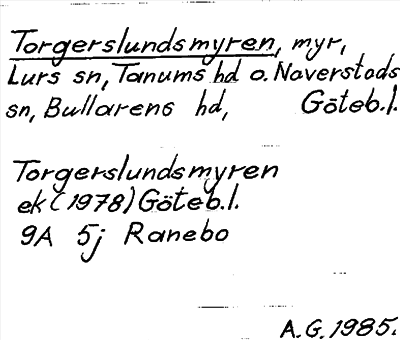 Torgerslundsmyren, myr,
Lurs sn, Tanums hd o. Naverstads
sn, Bullarens hd, Göteb.l.
Torgerslundsmyren
ek (1978) Göteb.l.
9A 5j Ranebo
A.G. 1985.